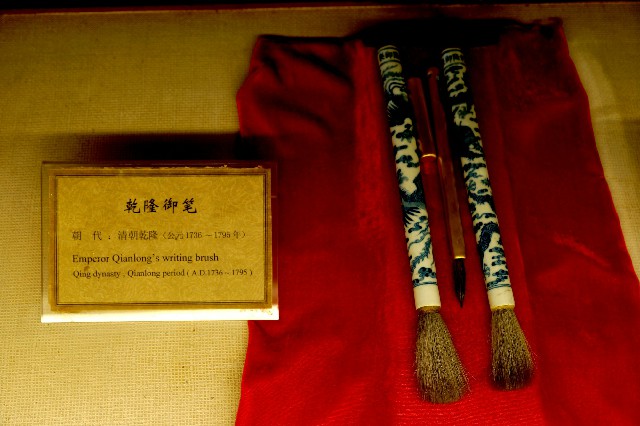 乾隆御笔
朝 代 : 清朝乾隆 (公元1736～1795年)
Emperor Qianlong's writing brush
Qing dynasty , Qianlong period ( A D.1736～1795 )